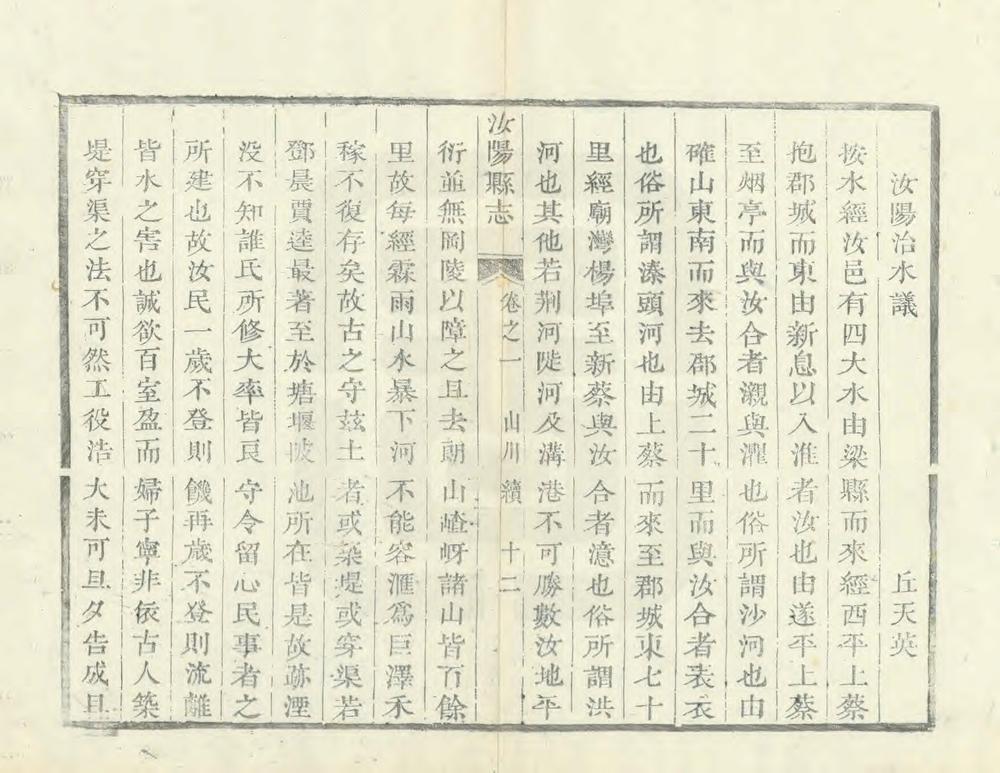 汝陽治水議　丘天英
按水經汝邑有四大水由梁縣而來經西平上蔡
抱郡城而東由新息以入淮者汝也由遂平上蔡
至烟亭而與汝合者瀙與灈也俗所謂沙河也由
確山東南而來去郡城二十里而與汝合者表衣
也俗所謂溱頭河也由上蔡而來至郡城東七十
里經廟灣楊埠至新蔡與汝合者澺也俗所謂洪
河也其他若荆河陡河及溝港不可勝數汝地平
汝陽縣志　卷之一　山川　續　十二
衍並無岡陵以障之且去朗山嵖岈諸山皆百餘
里故每經霖雨山水暴下河不能容滙爲巨澤禾
稼不復存矣故古之守玆土者或築堤或穿渠若
鄧晨賈逵最著至於塘堰陂池所在皆是故跡湮
没不知誰氏所修大率皆良守令留心民事者之
所建也故汝民一歲不登則饑再歲不登則流離
皆水之害也誠欲百室盈而婦子寧非依古人築
堤穿渠之法不可然工役浩大未可旦夕告成且